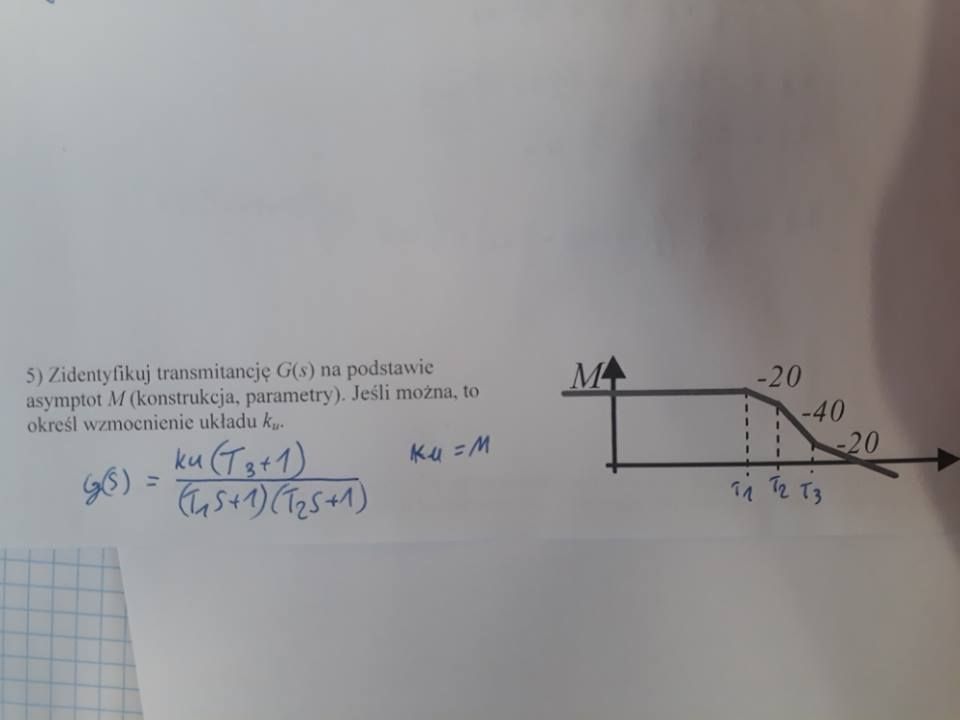 5) Zidentyfikuj transmitancję G(s) na podstawie
asymptot M (konstrukcja, parametry). Jeśli można, to
określ wzmocnienie układu kᵤ.
G(s) = ku(T3+1) / (T1s+1)(T2s+1)
ku = M
M
-20
-40
-20
T1 T2 T3